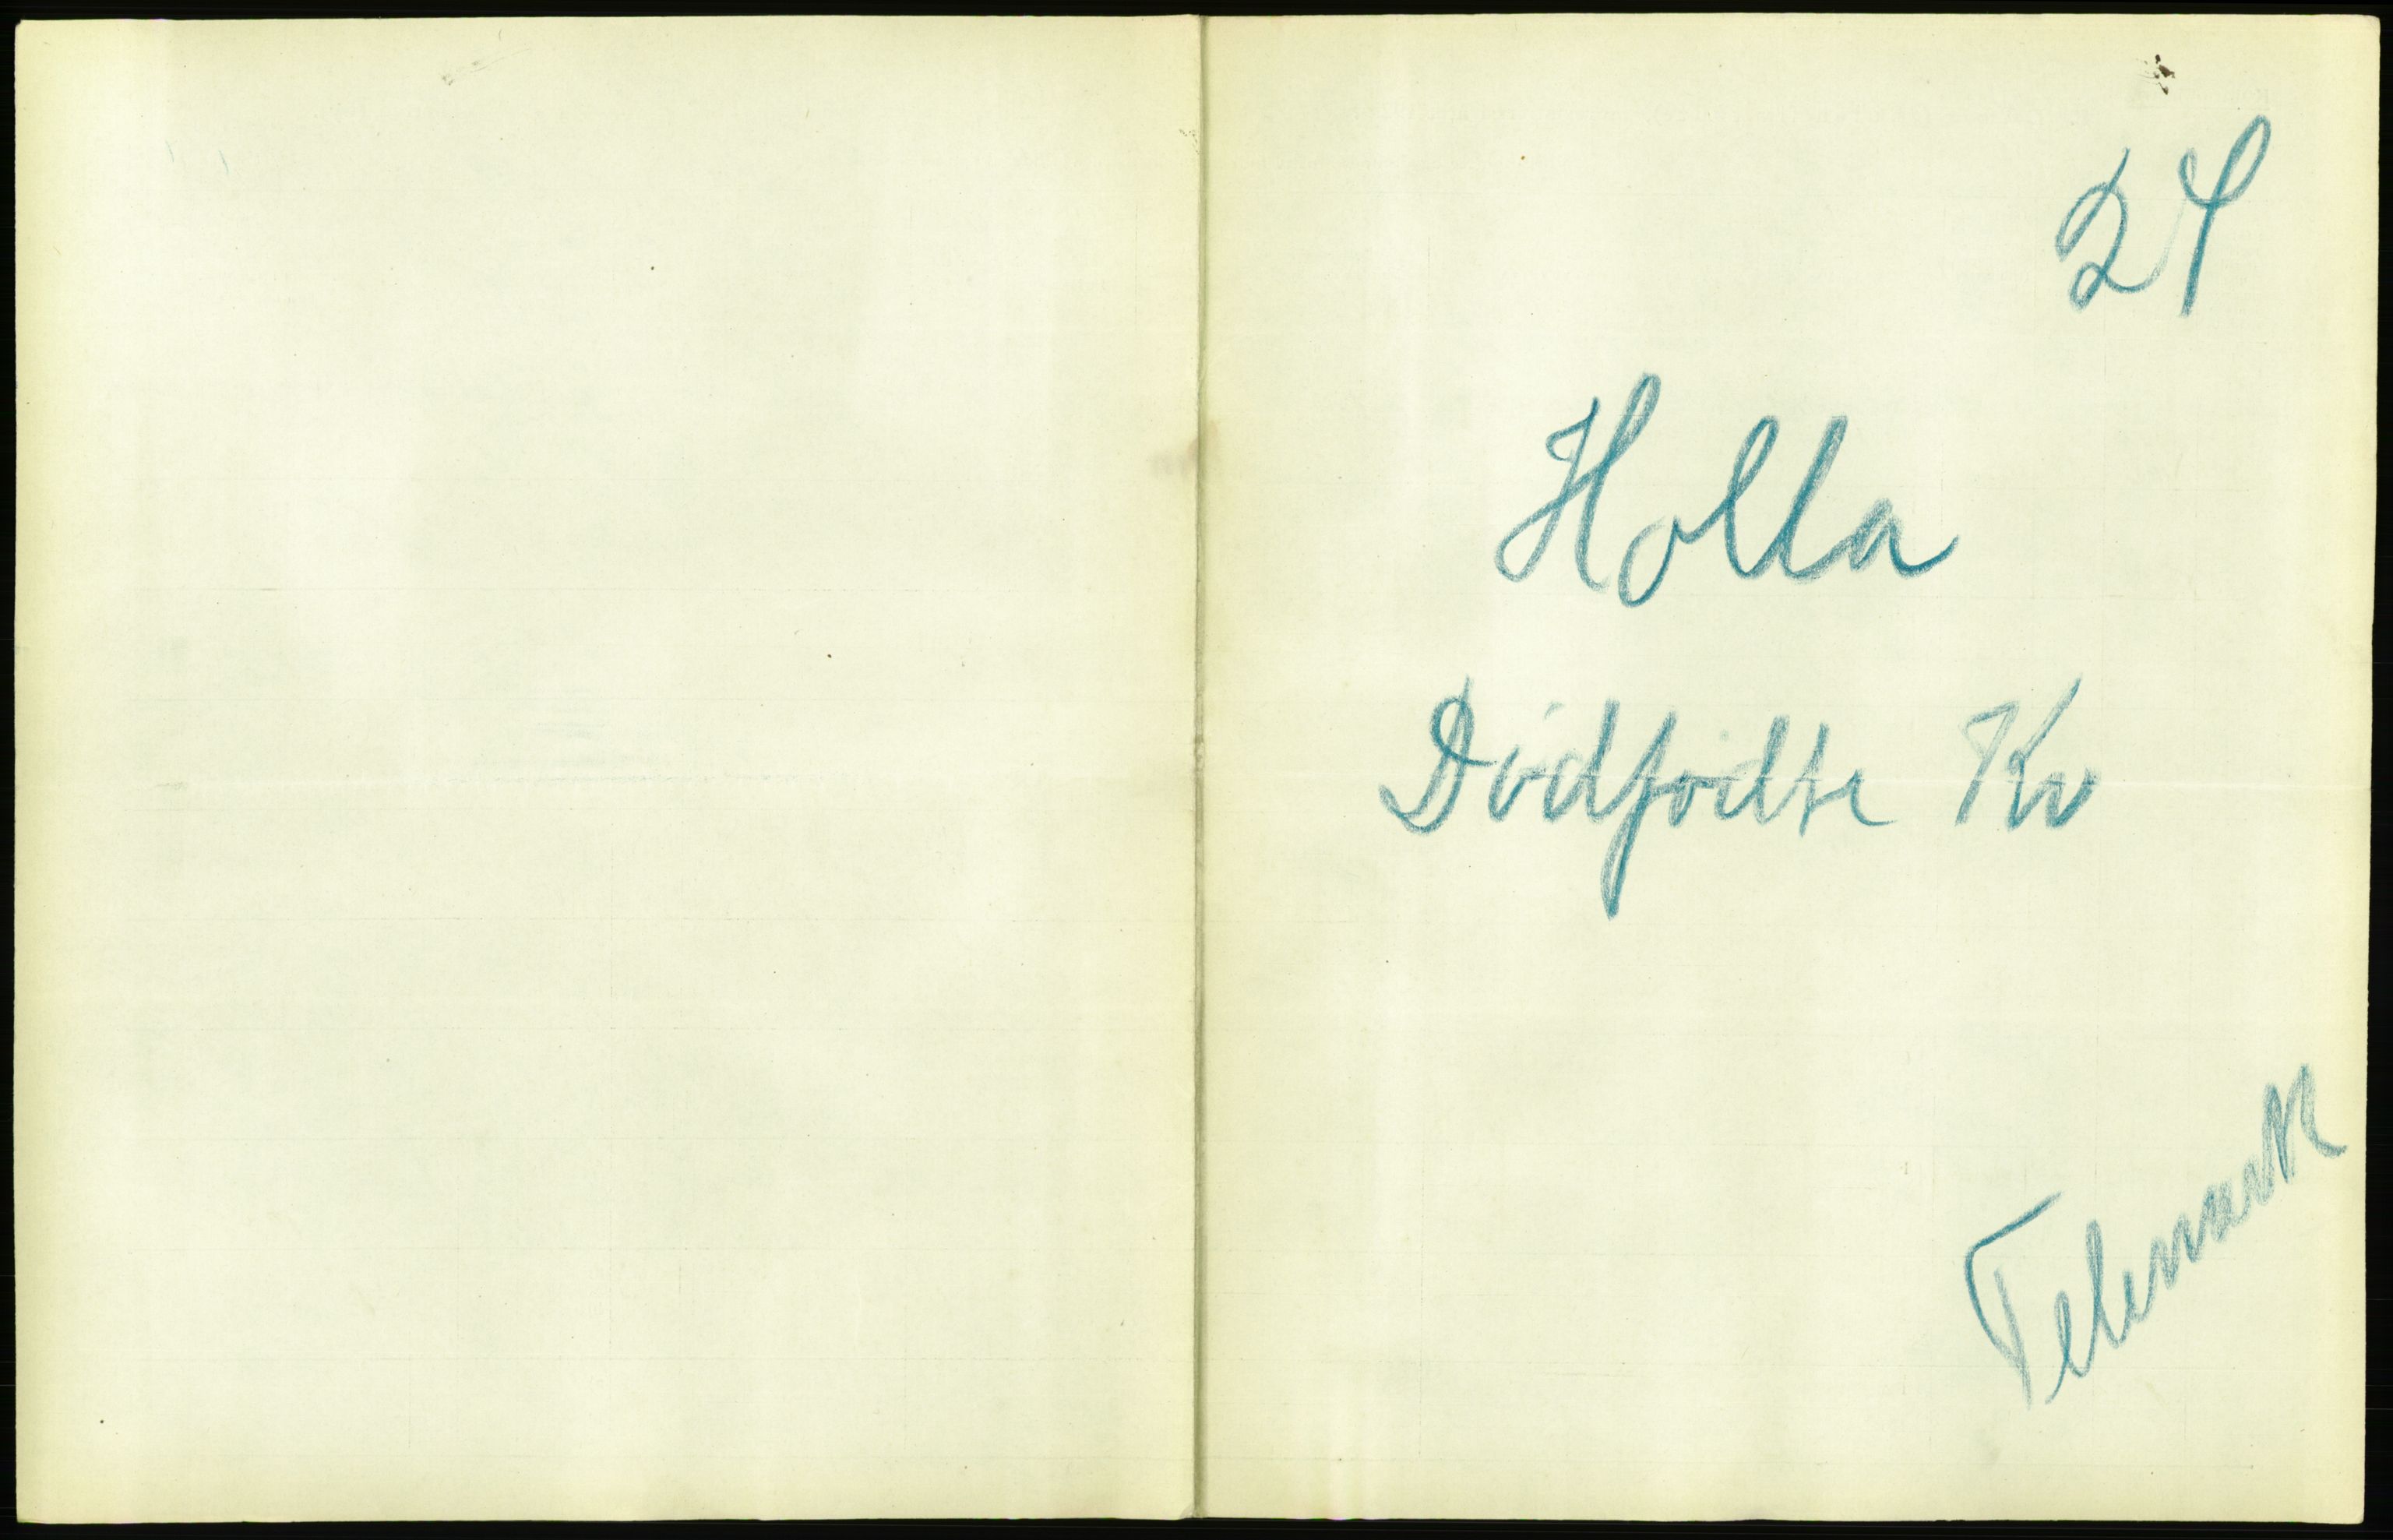 24
Holla
Dödfödte Kv
Telemark